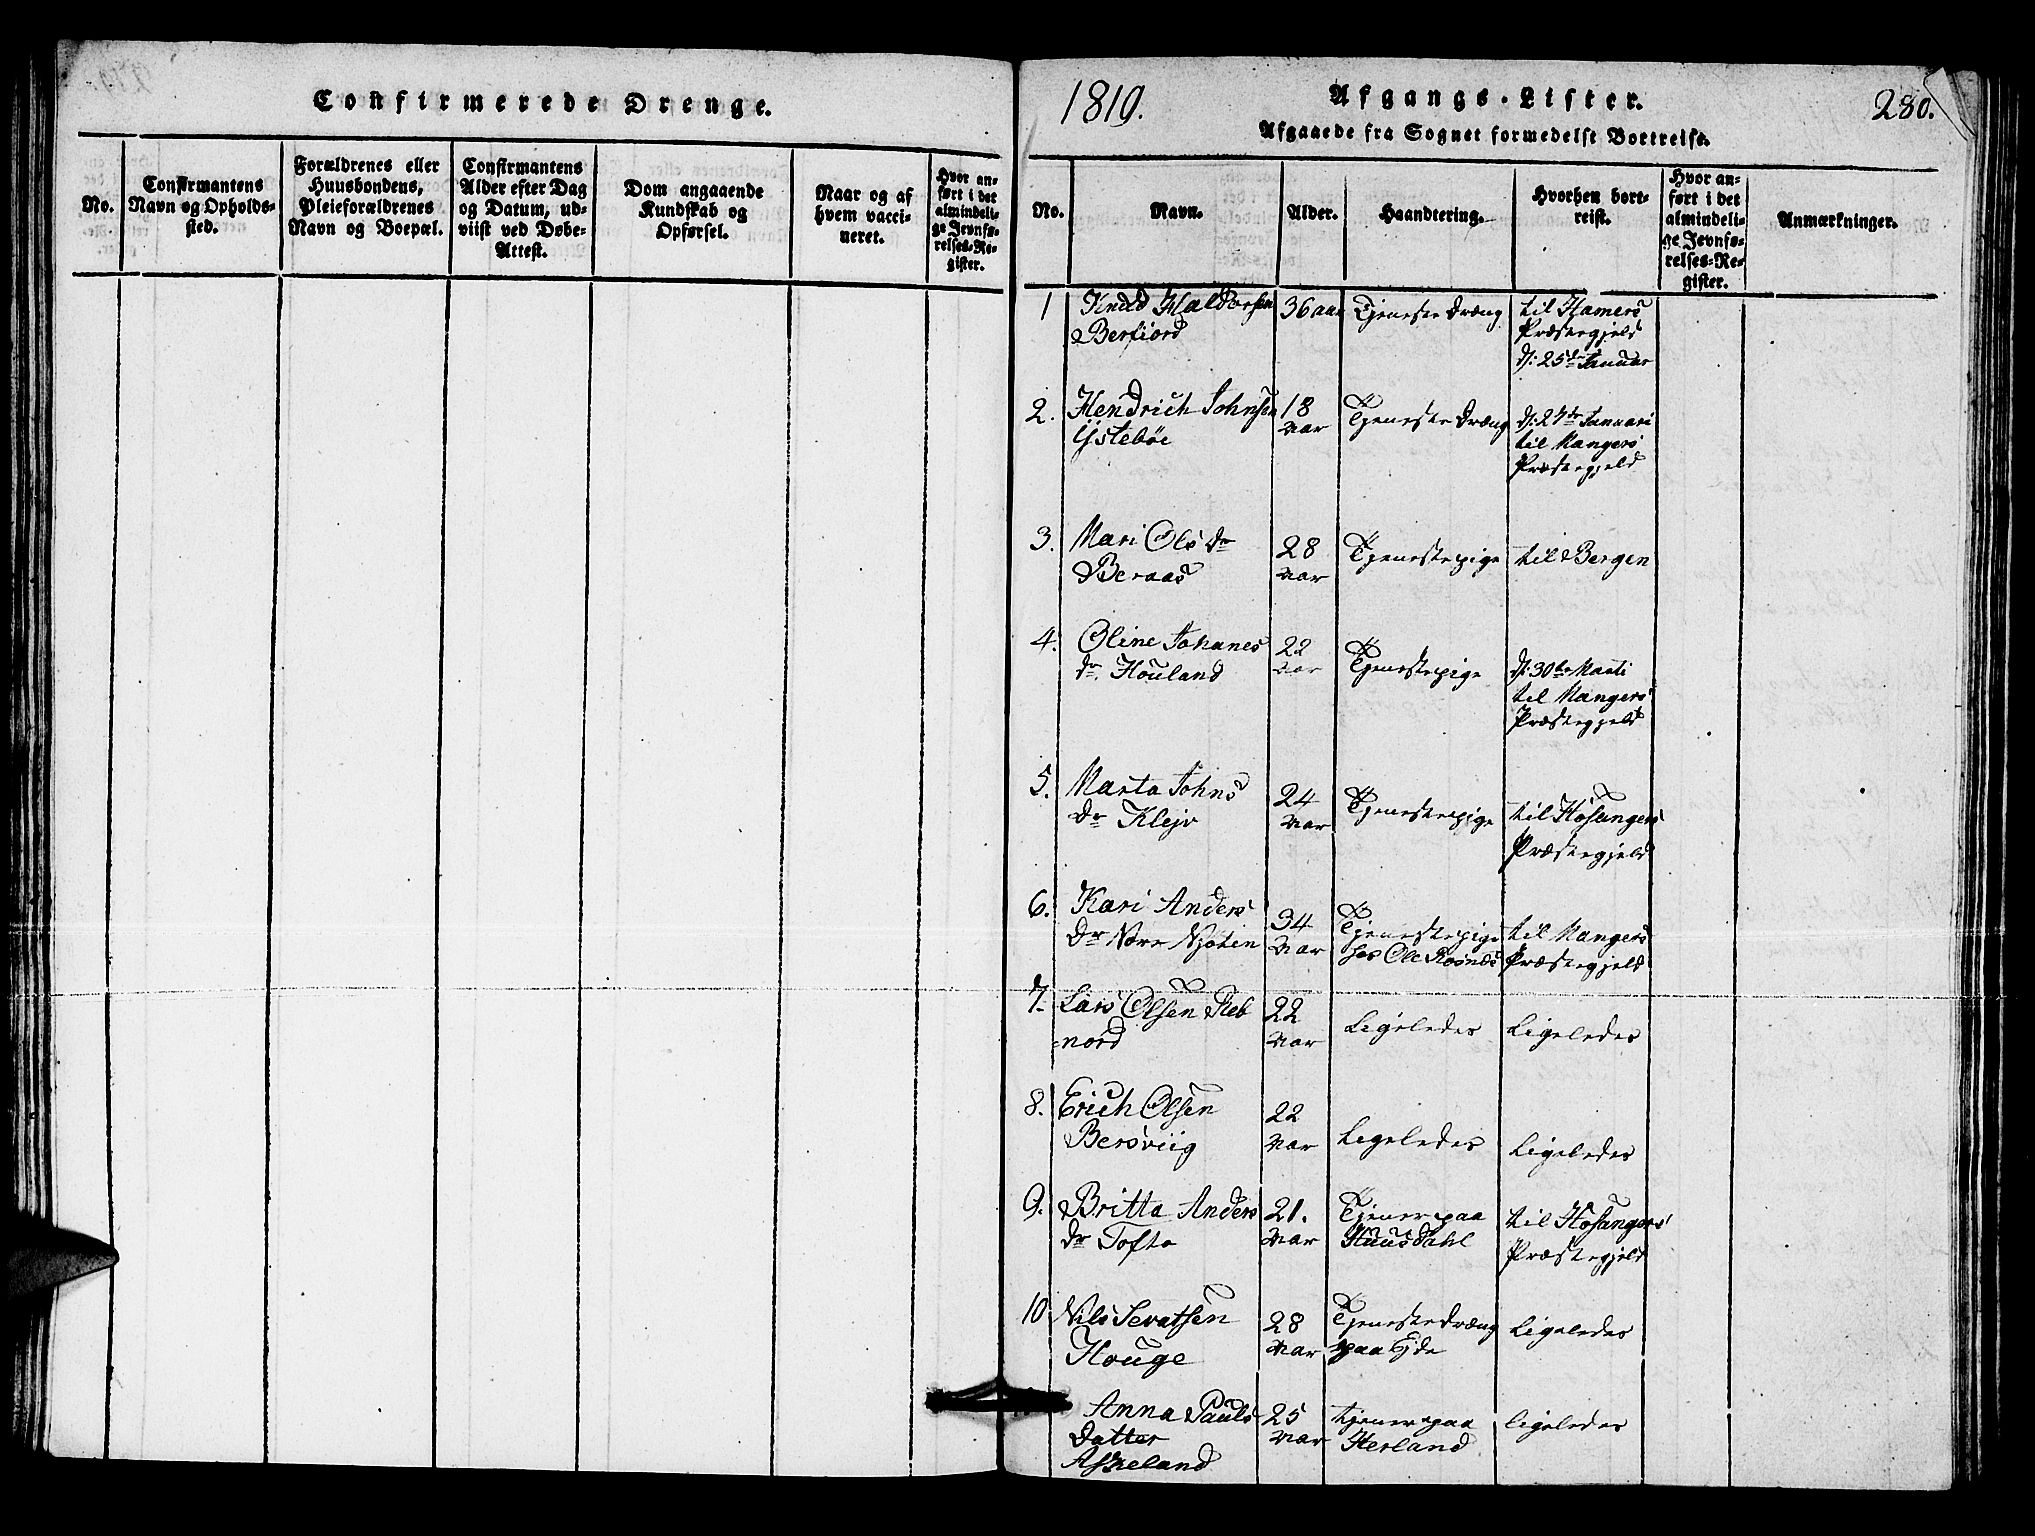 Confirmerede Drenge.
No.
Confirmantens
Navn og Opholds-
sted.
Forældrenes eller
Huusbondens,
Pleieforældrenes
Navn og Boepæl.
Confirmantens
Alder efter Dag
og Datum, ud-
viist ved Døbe-
Attest.
Dom angaaende
Kundskab og
Opførsel.
Naar og af
hvem vacci-
neret.
Hvor an-
ført i det
almindeli-
ge Jevnfø-
relses-Re-
gister.
1819.
Afgangs-Lister.
280.
Afgaaede fra Sognet formedelst Bortreise.
No.
Navn.
Alder.
Haandtering.
Hvorhen bort-
reist.
Hvor an-
ført i det
almindeli-
ge Jevnfø-
relses-Re-
gister.
Anmærkninger.
1
Knud Haldorsen
Berfiord
36 aar
Tjeneste Dræng
til Hamers
Præstegjeld
d: 25de Januar
2.
Hendrich Johnsen
Ystebøe
18
Aar
Tjeneste Dræng
d: 27de Januari
til Mangers
Præstegjeld
3.
Mari Ols Dr
Beraas
28
Aar
Tjenestepige
til Bergen
4.
Oline Johanes
Dr. Houland
22
Aar
Tjenestepige
d: 30te Marti
til Mangers
Præstegjeld
5.
Marta Johns
Dr Klejv
24
Aar
Tjenestepige
til Hosangers
Præstegjeld
6.
Kari Anders
Dr Nore Njøten
34
Aar
Tjenestepige
hos Ole Rosnes
til Mangers
Præstegjeld
7.
Lars Olsen Reb
=nord
22
Aar
Ligeledes
Ligeledes
8.
Erich Olsen
Bersviig
22
Aar
Ligeledes
Ligeledes
9.
Britta Anders
Dr Tofta
21.
Aar
Tjener paa
Huusdahl
til Hosangers
Præstegjeld
10
Nils Sevatsen
Houge
28
Aar
Tjenestedræng
paa Ejde
Ligeledes
Anna Pauls
Datter
Askeland
25
Aar
tjener paa
Herland
ligeledes